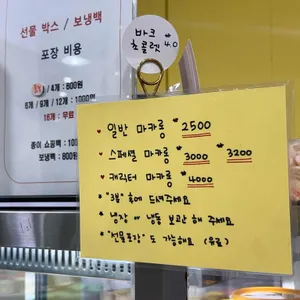 선물 박스 / 보냉백
포장 비용
/ 4개 : 600원
6개 / 8개 / 12개 : 1000원
16개 : 무료
종이 쇼핑백 : 100
보냉백 : 800원
바크
초콜렛 4.0
♥ 일반 마카롱 * 2500
♥ 스페셜 마카롱 * 3000 * 3200
♥ 캐릭터 마카롱 * 4000
* "3분" 후에 드셔주세요
* 냉장 or 냉동 보관 해 주세요
* "선물포장" 도 가능해요 (유료)